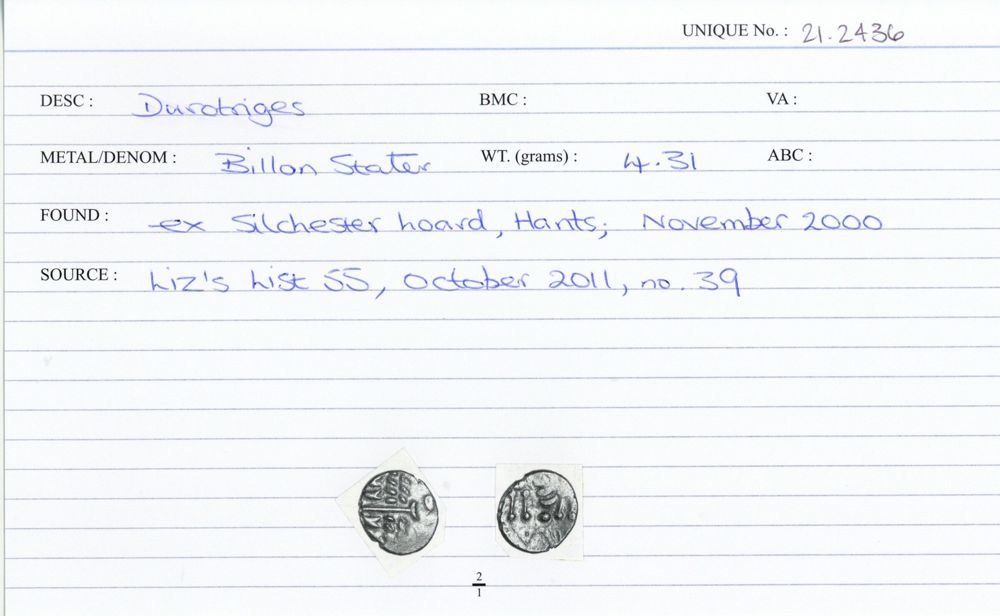 UNIQUE No. : 21.2436
DESC : Durotriges BMC : VA :
METAL/DENOM : Billon Stater WT. (grams) : 4.31 ABC :
FOUND : ex Silchester hoard, Hants; November 2000
SOURCE : Liz's List 55, October 2011, no. 39
2
1